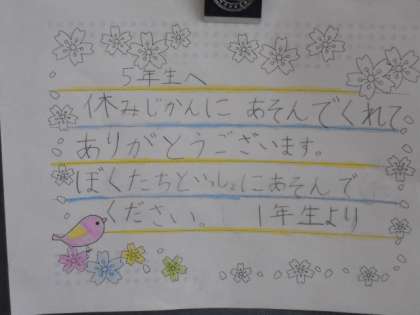 5年生へ
休みじかんに あそんでくれて
ありがとうございます。
ぼくたちといっしょにあそんで
ください。 1年生より